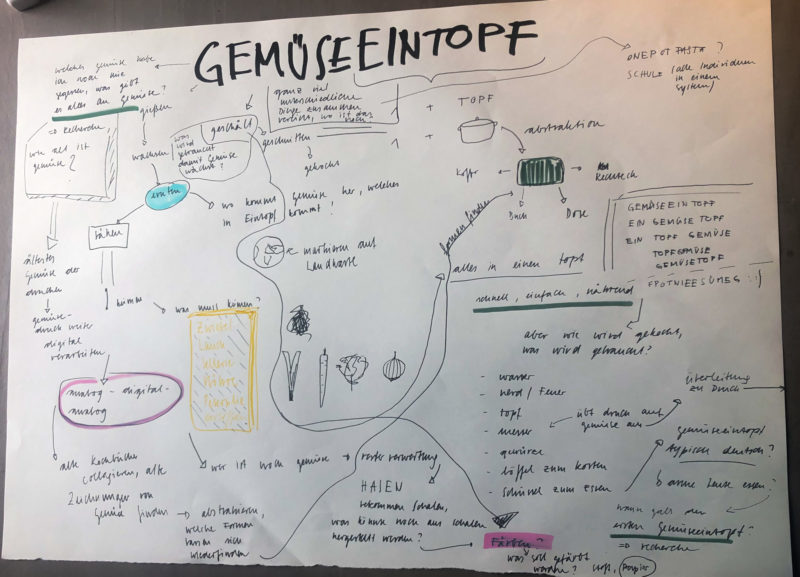 GEMÜSEEINTOPF
welches gemüse habe
ich noch nie
gegessen, was gibt
es alles an Gemüse?
⇒ recherche
wie alt ist
gemüse?
ältestes
gemüse der
gemüse-
druck weiter
digital
verarbeiten
analog - digital -
analog
alte Kochbücher
collagieren, alte
Zeichnungen von
Gemüse finden
gießen
wachsen
was
wird
gebraucht
damit Gemüse
wächst?
ernten
keimen
geschält
geschnitten
gekocht
ganz viel
unterschiedliche
Dinge zusammen
vereint, wo ist das
noch?
wo kommt Gemüse her, welches
in Eintopf kommt?
= markieren auf
Landkarte
was muss hinein?
Zwiebel
Lauch
Möhre
wer ist noch gemüse → resteverwertung
HASEN
bekommen Schalen,
was könnte noch aus schalen
hergestellt werden?
→ abstrahieren,
welche Formen
lassen sich
wiederfinden
Färben?
was soll gefärbt
werden? Stoff, Papier
ONEPOT PASTA?
SCHULE (alle Individuen
in einem
System)
+ TOPF
+
abstraktion
Koffer
Buch
Dose
formen finden
alles in einen topf
schnell, einfach, nährend
GEMÜSEEINTOPF
EIN GEMÜSE TOPF
EIN TOPF GEMÜSE
TOPFGEMÜSE
GEMÜSETOPF
FPOTNIEESÜMEG :)
aber wie wird gekocht,
was wird gebraucht?
- wasser
- herd / Feuer
- topf
- messer
- gewürze
- löffel zum kosten
- schüssel zum essen
übt druck auf
gemüse aus
überleitung
zu Druck
gemüseeintopf
typisch deutsch?
arme Leute essen?
wann gab den
ersten Gemüseeintopf?
⇒ recherche